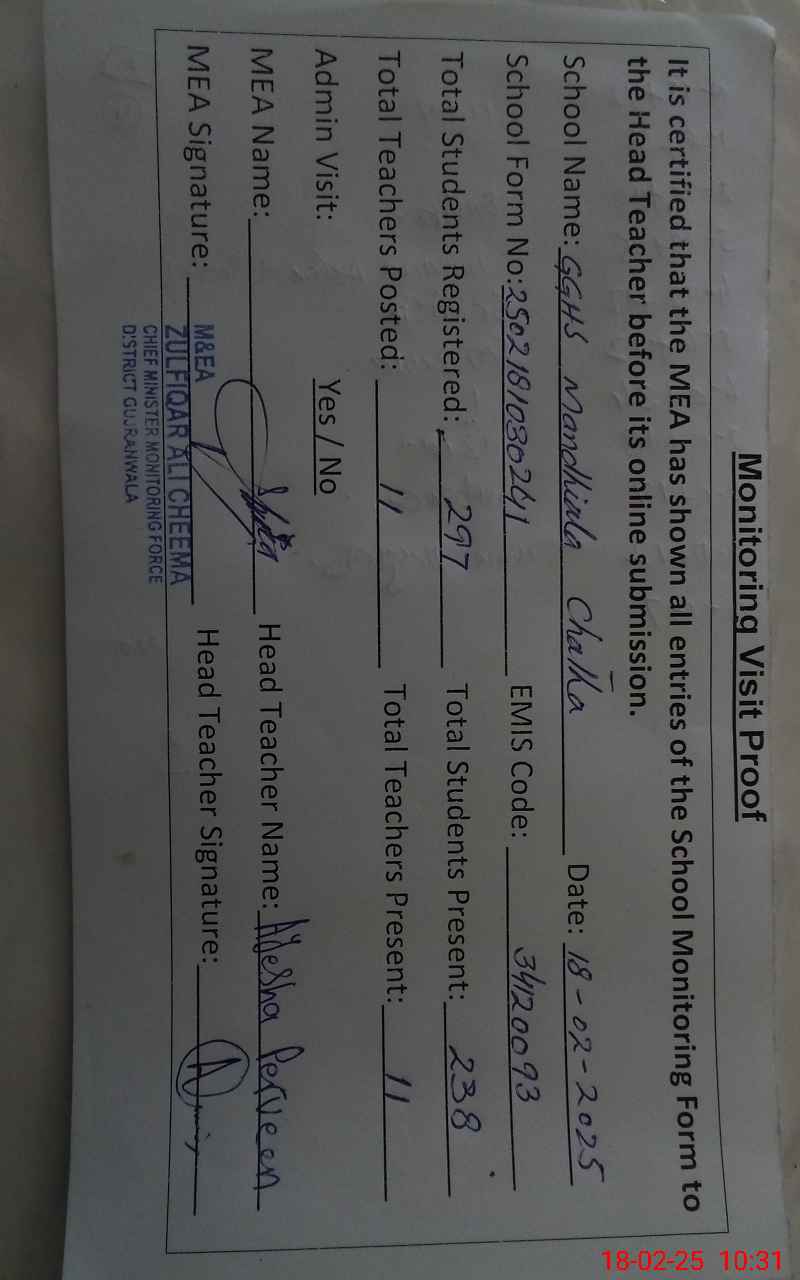 Monitoring Visit Proof
It is certified that the MEA has shown all entries of the School Monitoring Form to
the Head Teacher before its online submission.
School Name: GGHS Mandhiala Chatha Date: 18-02-2025
School Form No: 2502181030241 EMIS Code: 34120093
Total Students Registered: 297 Total Students Present: 238
Total Teachers Posted: 11 Total Teachers Present: 11
Admin Visit: Yes / No
MEA Name: Head Teacher Name: Ayesha Perveen
MEA Signature: Head Teacher Signature:
M&EA
ZULFIQAR ALI CHEEMA
CHIEF MINISTER MONITORING FORCE
DISTRICT GUJRANWALA
18-02-25 10:31